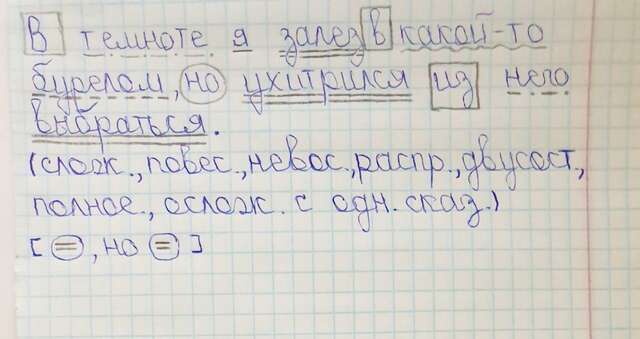 В темноте я залез в какой-то
бурелом, но ухитрился из него
выбраться.
(слож., повес., невос., распр., двусост.,
полное., ослож. с одн. сказ.)
[ = , но = ]